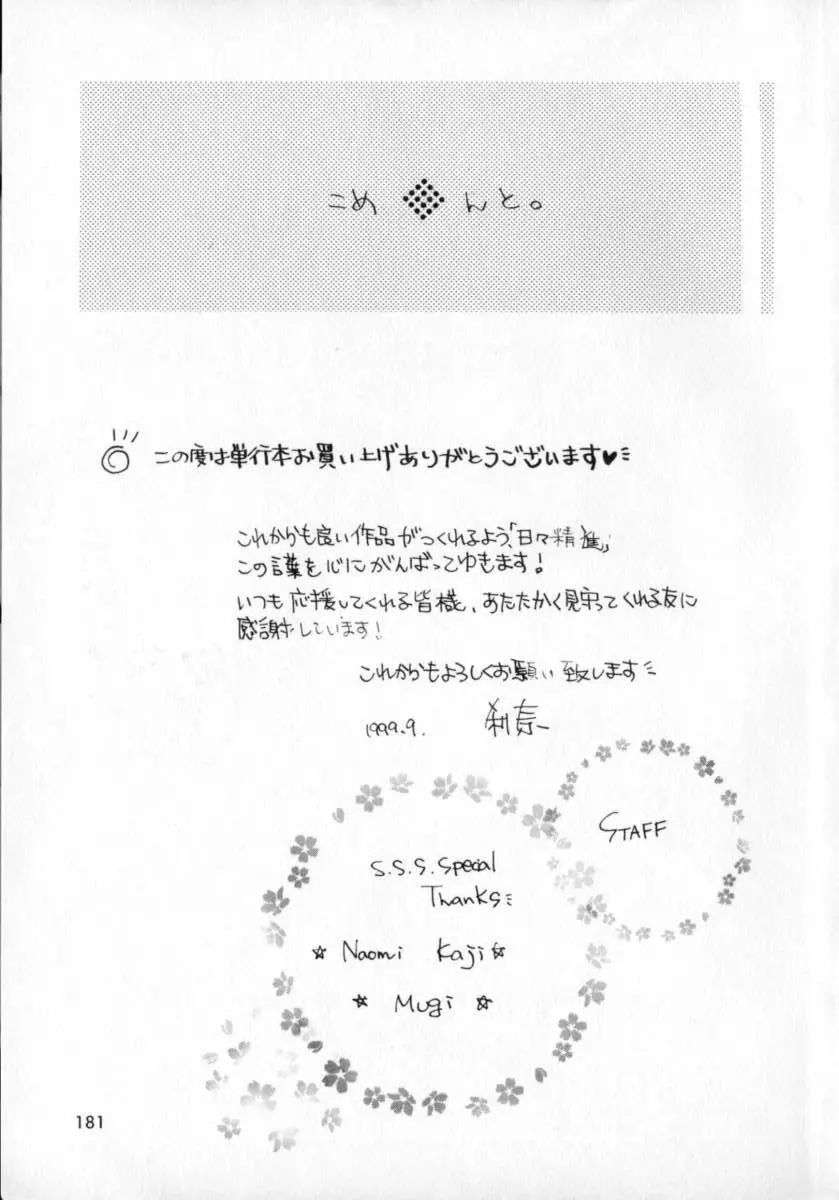 こめんと。
この度は単行本お買い上げありがとうございます♥
これからも良い作品がつくれるよう、「日々精進」
この言葉を心にがんばってゆきます！
いつも応援してくれる皆様、あたたかく見守ってくれる友に
感謝しています！
これからもよろしくお願い致します
1999.9. 刹奈
STAFF
S.S.S. Special
Thanks
☆ Naomi Kaji ☆
☆ Mugi ☆
181